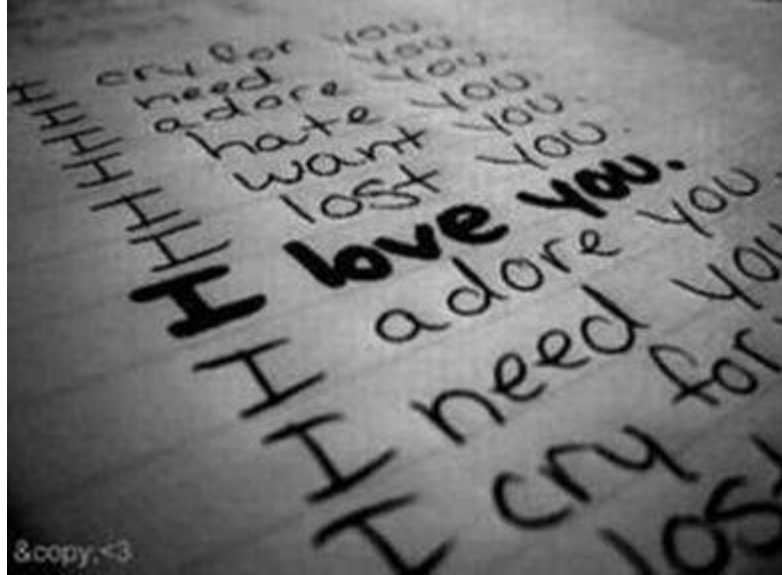 I cry for you.
I need you.
I adore you.
I hate you.
I want you.
I lost you.
I love you.
I adore you.
I need you
I cry for
lost
&copy,<3